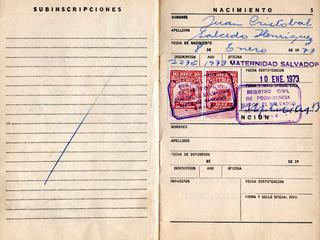 SUBINSCRIPCIONES
NACIMIENTO 5
NOMBRES
Juan Cristobal
APELLIDOS
Salcedo Henriquez
FECHA DE NACIMIENTO
8 de Enero de 1973
INSCRIPCION AÑO OFICINA
1973 MATERNIDAD SALVADOR
FECHA CERTIFICACION
10 ENE. 1973
REGISTRO CIVIL
DE PROVIDENCIA
SALVADOR
CHILE
NOMBRES
APELLIDOS
FECHA DE DEFUNCION DE DE 19
INSCRIPCION AÑO OFICINA
IMPUESTOS FECHA CERTIFICACION
FIRMA Y SELLO OFICIAL CIVIL